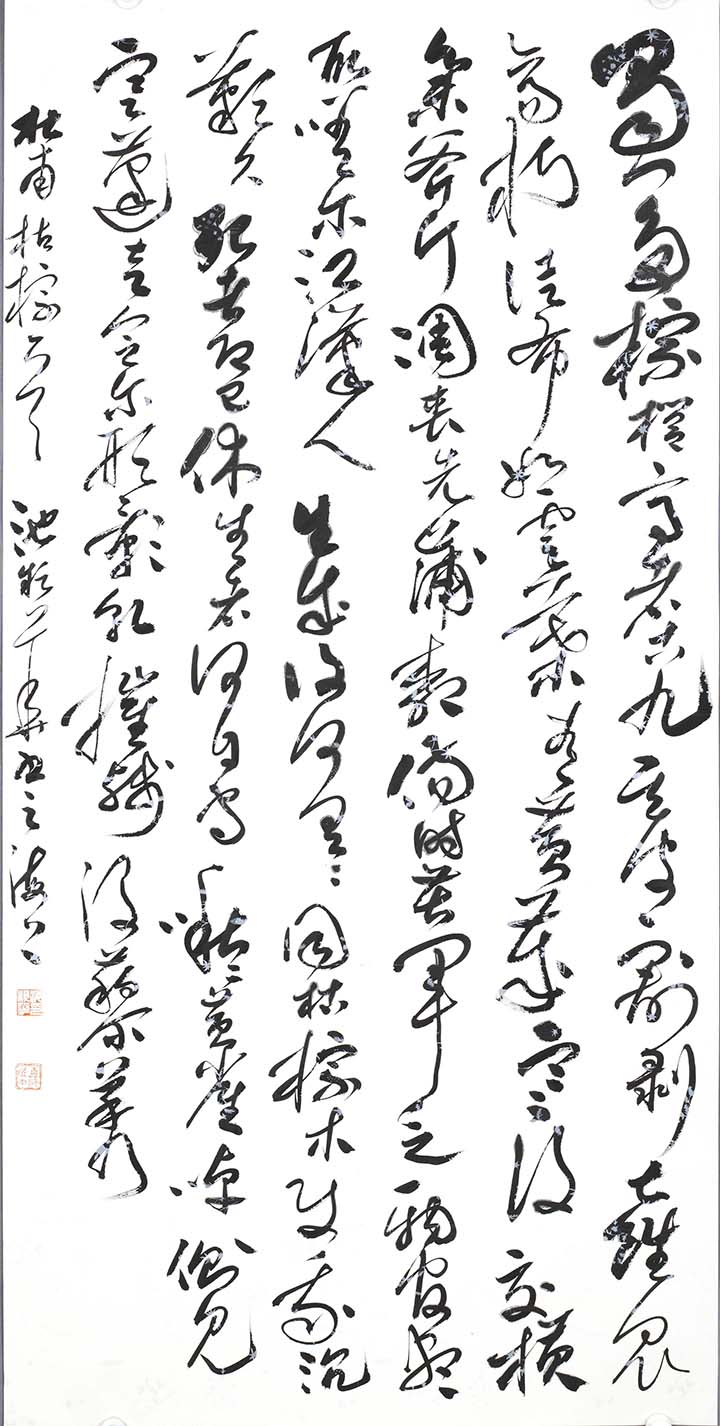 蜀門多棕櫚高者十八九其皮割剝甚雖眾
亦易朽徒布如雲葉青黃歲寒後交橫
集斧斤凋喪先蒲柳傷時苦軍乏一物官盡
取嗟爾江漢人生成復何有々同枯棕木使我沉
歎久死者即已休生者何自守啾々黃雀啅側見
寒蓬走念爾形影乾摧殘沒藜莠
杜甫枯棕 海上